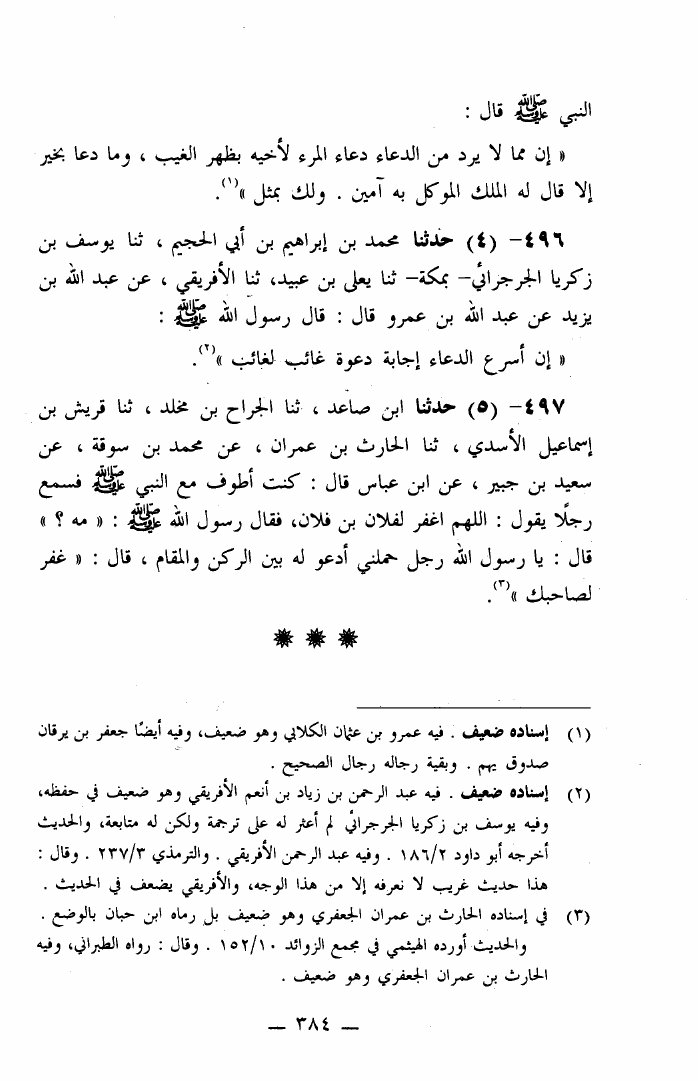 النبي ﷺ قال :
« إن مما لا يرد من الدعاء دعاء المرء لأخيه بظهر الغيب ، وما دعا بخير
إلا قال له الملك الموكل به آمين . ولك بمثل »(١).
٤٩٦- (٤) حدثنا محمد بن إبراهيم بن أبي الحجيم ، ثنا يوسف بن
زكريا الجرجرائي- بمكة- ثنا يعلى بن عبيد، ثنا الأفريقي ، عن عبد الله بن
يزيد عن عبد الله بن عمرو قال : قال رسول الله ﷺ :
« إن أسرع الدعاء إجابة دعوة غائب لغائب »(٢).
٤٩٧- (٥) حدثنا ابن صاعد ، ثنا الجراح بن مخلد ، ثنا قريش بن
إسماعيل الأسدي ، ثنا الحارث بن عمران ، عن محمد بن سوقة ، عن
سعيد بن جبير ، عن ابن عباس قال : كنت أطوف مع النبي ﷺ فسمع
رجلًا يقول : اللهم اغفر لفلان بن فلان، فقال رسول الله ﷺ : « مه ؟ »
قال : يا رسول الله رجل حملني أدعو له بين الركن والمقام ، قال : « غفر
لصاحبك »(٣).
(١) إسناده ضعيف . فيه عمرو بن عثمان الكلابي وهو ضعيف، وفيه أيضًا جعفر بن يرقان
صدوق يهم . وبقية رجاله رجال الصحيح .
(٢) إسناده ضعيف . فيه عبد الرحمن بن زياد بن أنعم الأفريقي وهو ضعيف في حفظه،
وفيه يوسف بن زكريا الجرجرائي لم أعثر له على ترجمة ولكن له متابعة، والحديث
أخرجه أبو داود ١٨٦/٢ . وفيه عبد الرحمن الأفريقي . والترمذي ٢٣٧/٣ . وقال :
هذا حديث غريب لا نعرفه إلا من هذا الوجه، والأفريقي يضعف في الحديث .
(٣) في إسناده الحارث بن عمران الجعفري وهو ضعيف بل رماه ابن حبان بالوضع .
والحديث أورده الهيثمي في مجمع الزوائد ١٥٢/١٠ . وقال : رواه الطبراني، وفيه
الحارث بن عمران الجعفري وهو ضعيف .
— ٣٨٤ —